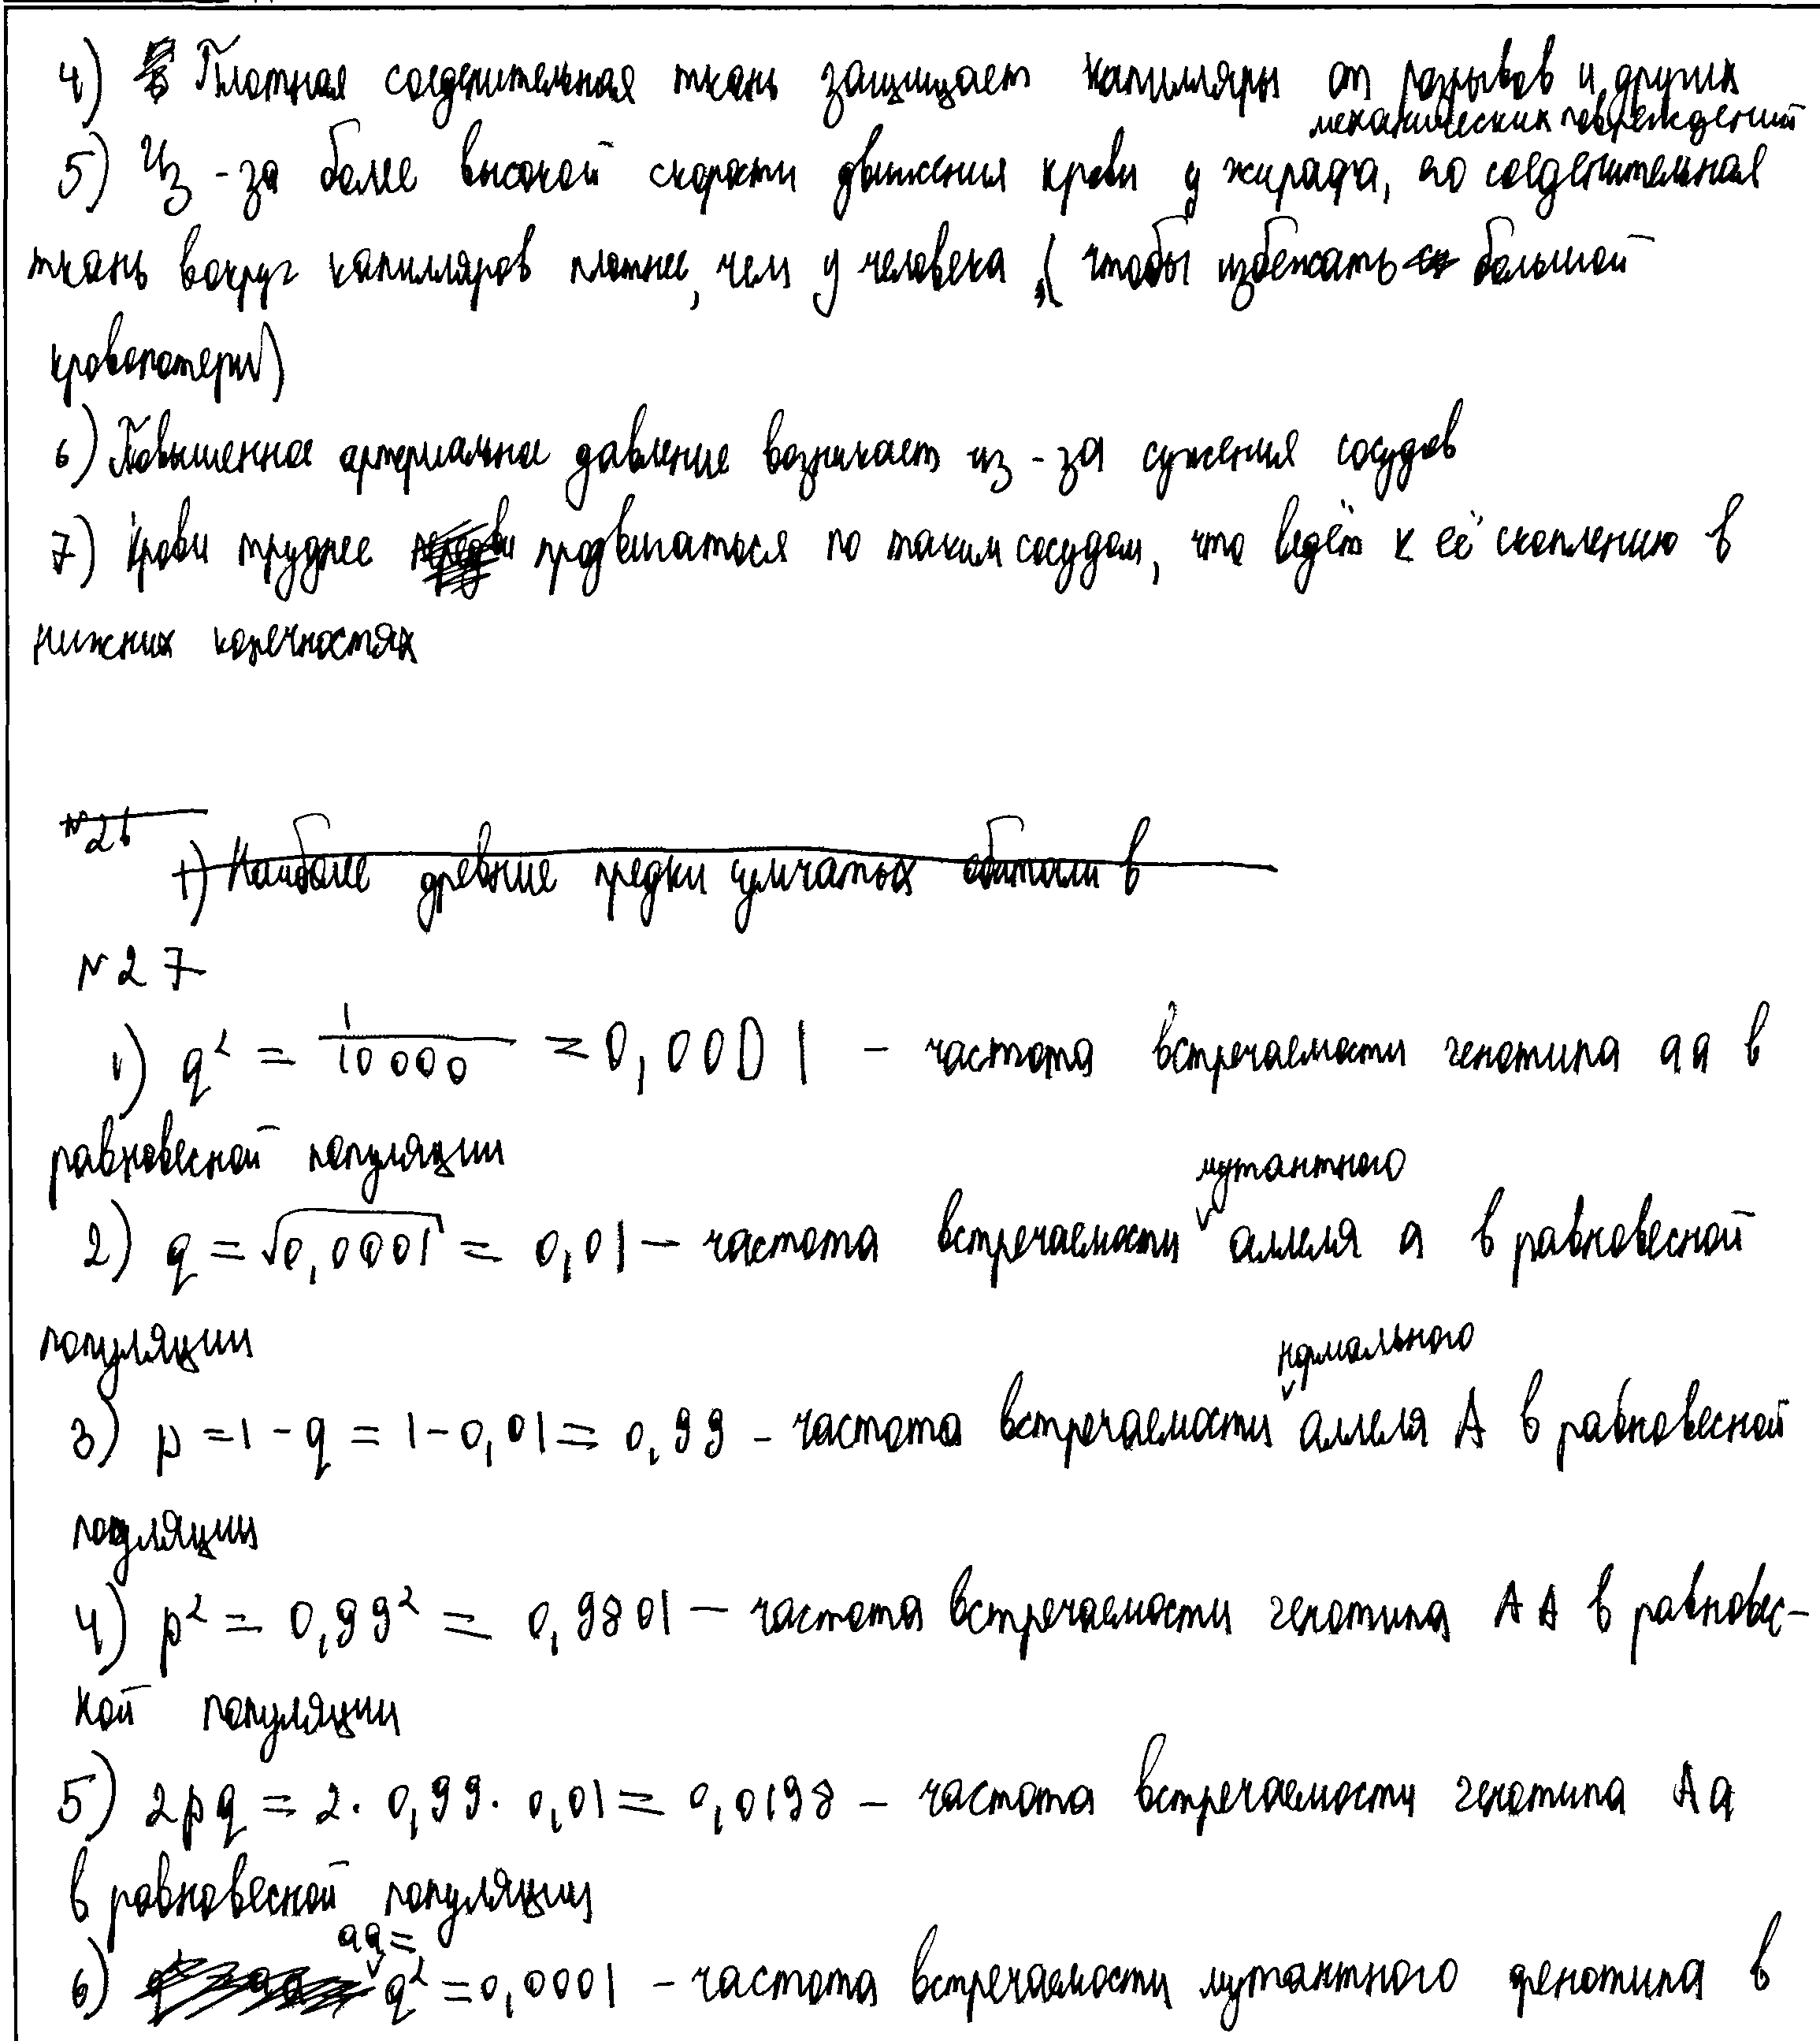 4) Плотная соеденительная ткань защищает капилляры от разрывов и других
механических повреждений
5) Из-за более высокой скорости движения крови у жирафа, его соеденительная
ткань вокруг капилляров плотнее, чем у человека (чтобы избежать большой
кровопотери)
6) Повышенное артериальное давление возникает из-за сужения сосудов
7) Крови труднее продвигаться по таким сосудам, что ведёт к её скоплению в
нижних конечностях
№26
1) Наиболее древние предки сумчатых обитали в
№27
1) q² = 1/10000 = 0,0001 – частота встречаемости генотипа aa в
равновесной популяции
2) q = √0,0001 = 0,01 – частота встречаемости мутантного аллеля a в равновесной
популяции
3) p = 1 - q = 1 - 0,01 = 0,99 – частота встречаемости нормального аллеля A в равновесной
популяции
4) p² = 0,99² = 0,9801 – частота встречаемости генотипа AA в равновес-
ной популяции
5) 2pq = 2 · 0,99 · 0,01 = 0,0198 – частота встречаемости генотипа Aa
в равновесной популяции
6) aa = q² = 0,0001 – частота встречаемости мутантного фенотипа в